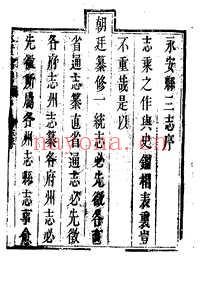 永安縣三志序
志乘之作與史鑑相表裏豈
不重哉是以
朝廷纂修一統志必先徵各直
省通志纂直省通志必先徵
各府志州志纂各府州志必
先徵所屬各州志縣志